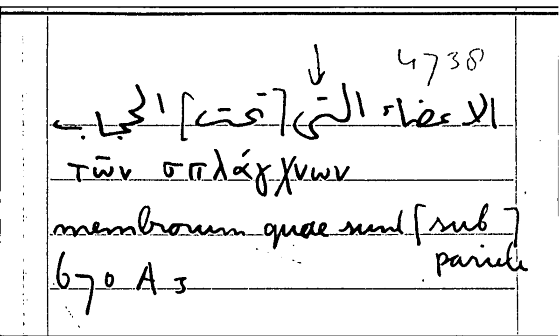 4738
الاعضاء التى [تحت] الحجاب
τῶν σπλάγχνων
membrorum quae sunt [sub]
pariete
670 A 3